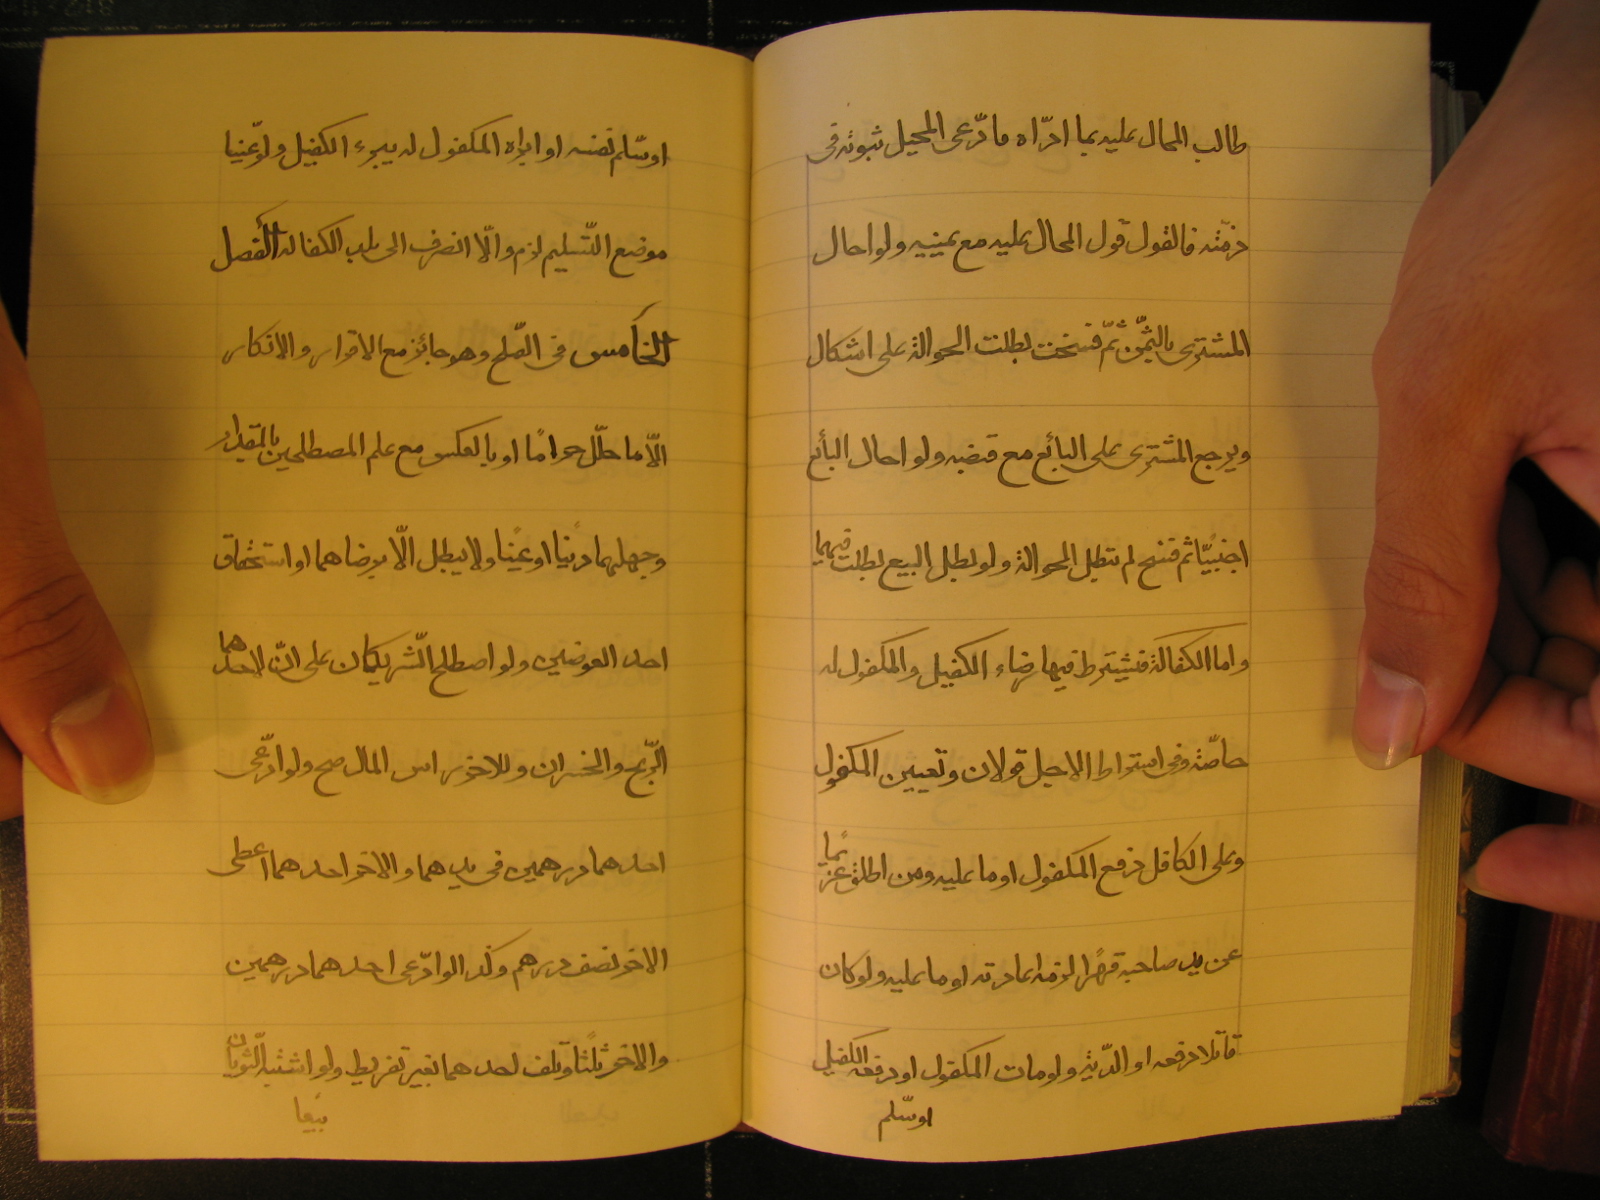 طالب المحال عليه بما ادّاه مادّعى المحيل ثبوته فى
ذمّته فالقول قول المحال عليه مع يمينه ولو احال
المشترى بالثمّن ثمّ فسخت بطلت الحوالة على اشكال
ويرجع المشترى على البائع مع قبضه ولو احال البائع
اجنبيّا ثم فسخ لم تبطل الحوالة ولو بطل البيع بطلت فيهما
واما الكفالة فيشترط فيها رضاء الكفيل والمكفول له
خاصّة وفى اشتراط الاجل قولان وتعيين المكفول
وعلى الكافل دفع المكفول او ما عليه ومن اطلق غريمًا
عن يد صاحبه قهرًا لزمه اعادته او ما عليه ولو كان
قاتلا دفعه او الدّية ولو مات المكفول او دفعه الكفيل
او سّلم
او سّلم نفسه او ابراه المكفول له يبرء الكفيل ولو عّينا
موضع التّسليم لزم والّا انصرف الى بلد الكفالة الفصل
الخامس فى الصّلح وهو جائز مع الاقرار والانكار
الّا ما حلّل حرامًا او بالعكس مع علم المصطلحين بالمقدار
وجهلهما دينًا او عينًا ولا يبطل الّا برضاهما او استحقاق
احد العوضين ولو اصطلح الشّريكان على انّ لاحدهما
الرّبح والخسران وللاخر راس المال صح ولو ادّعى
احدهما درهمين فى يدهما والاخر احدهما اعطى
الاخر نصف درهم وكذا لو ادّعى احدهما درهمين
والاخر ثلثًا وتلف احدهما بغير تفريط ولو اشتبه الثّوبان
بيعا